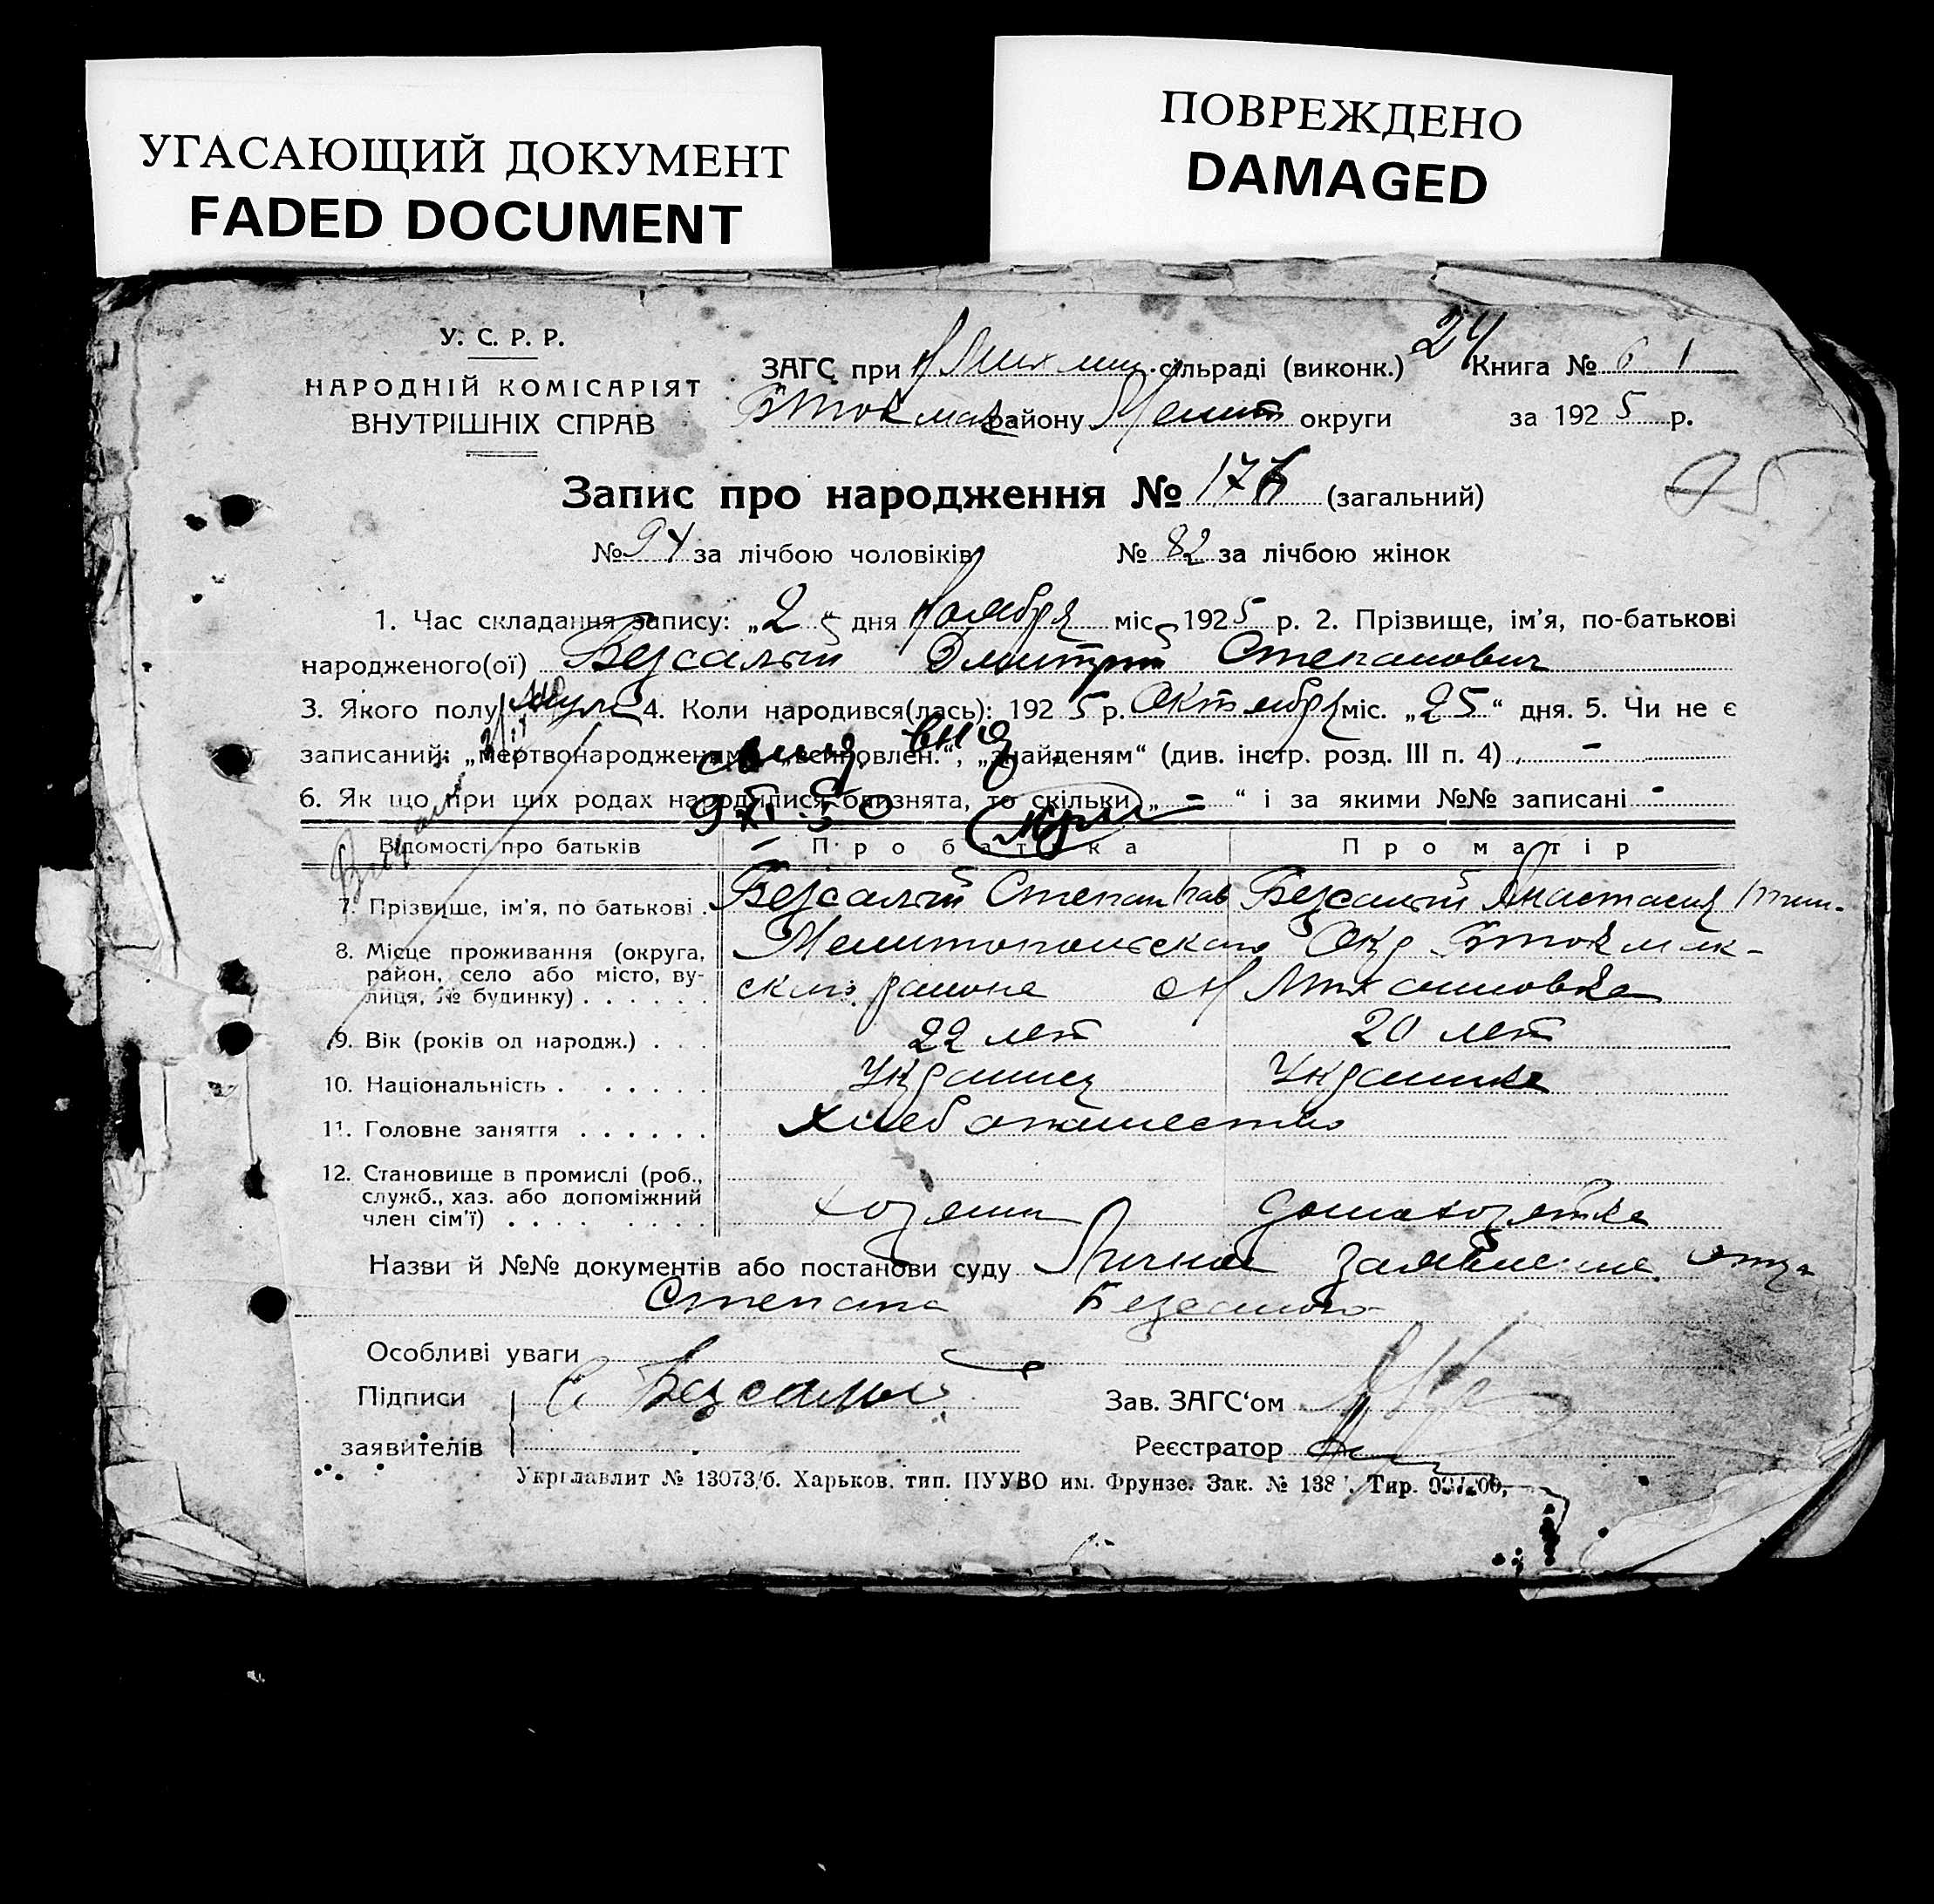 УГАСАЮЩИЙ ДОКУМЕНТ
FADED DOCUMENT
ПОВРЕЖДЕНО
DAMAGED
У. С. Р. Р.
НАРОДНІЙ КОМІСАРІЯТ
ВНУТРІШНІХ СПРАВ
24
ЗАГС при сільраді (виконк.) Книга № 6 1
Б Токмак району Мелит округи за 1925 р.
Запис про народження № 176 (загальний)
95
№ 94 за лічбою чоловіків № 82 за лічбою жінок
1. Час складання запису: „2“ дня Ноября міс. 1925 р. 2. Прізвище, ім'я, по-батькові
народженого(ої) Безсалый Дмитрий Степанович
3. Якого полу муж 4. Коли народився(лась): 1925 р. Октября міс. „25“ дня. 5. Чи не є
записаний: „мертвонародженим“, „всиновлен.“, „знайденям“ (див. інстр. розд. III п. 4) -
6. Як що при цих родах народилися близнята, то скільки „-“ і за якими №№ записані -
Відомості про батьків Про батька Про матір
7. Прізвище, ім'я, по батькові . Безсалый Степан Пав Безсалый Анастасия
8. Місце проживання (округа, Мелитопольского Окр Б Токмак-
район, село або місто, ву- ского района с Н Михайловка
лиця, № будинку) . . . . . .
9. Вік (років од народж.) . . . 22 лет 20 лет
10. Національність . . . . . . Украинец Украинка
11. Головне заняття . . . . . . Хлебопашество
12. Становище в промислі (роб.,
служб., хаз. або допоміжний
член сім'ї) . . . . . . . . Хозяин домохозяйка
Назви й №№ документів або постанови суду Личное заявление отца
Степана Безсалого
Особливі уваги
Підписи С Безсалый Зав. ЗАГС'ом
заявителів Реєстратор
Укрглавлит № 13073/б. Харьков. тип. ПУУВО им. Фрунзе. Зак. № 138 Тир.